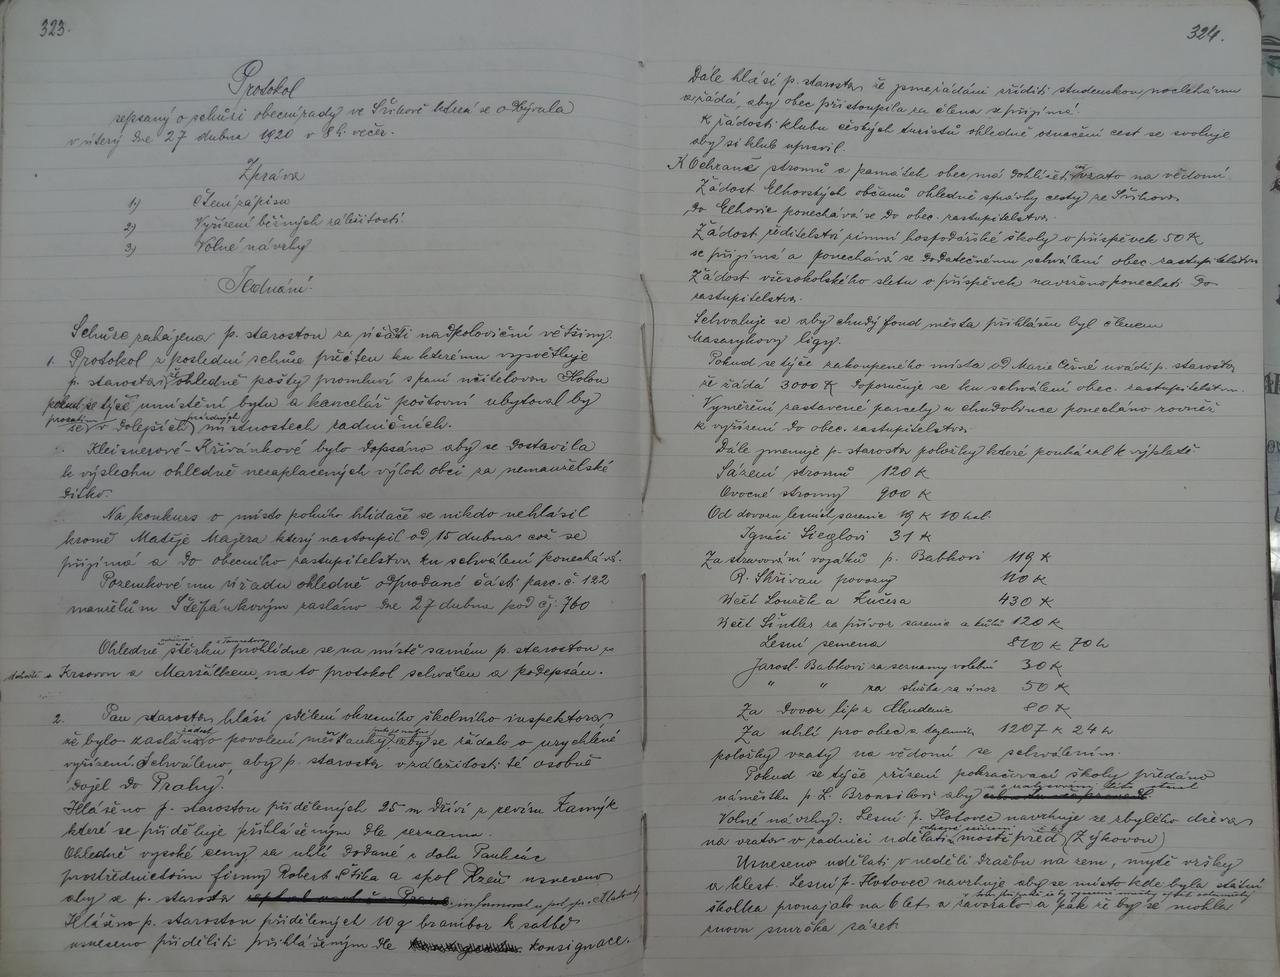 323.
Protokol
sepsaný o schůzi obecní rady ve Švihově která se odbývala
v úterý dne 27 dubna 1920 v 8 h. večer.
Zpráva
1) Čtení zápisu
2) Vyřízení běžných záležitostí
3) Volné návrhy
Jednání:
Schůze zahájena p. starostou za účasti nadpoloviční většiny.
1. Protokol z poslední schůze přečten ku kterému vysvětluje
p. starosta, že ohledně pošty promluví s paní učitelovou
pokud se týče umístění bytu a kancelář poštovní ubytoval by
se v dolejších místnostech radničních.
Kleisnerové-Křivánkové bylo dopsáno aby se dostavila
k výslechu ohledně nezaplacených výloh obci za nemanželské
dítko.
Na konkurs o místo polního hlídače se nikdo nehlásil
kromě Matěje Majera který nastoupil od 15 dubna což se
přijímá a do obecního zastupitelstva ku schválení ponechává.
Pozemkovému úřadu ohledně odprodané části parc. č. 122
manželům Štěpánkovým zasláno dne 27 dubna pod čj. 760
Ohledně štěrku prohlídne se na místě samém p. starostou
Krsovou a Maršálkem, na to protokol schválen a podepsán.
2. Pan starosta hlásí sdělení okresního školního inspektora
že bylo zasláno o povolení měšťanky aby se žádalo o urychlené
vyřízení. Schváleno, aby p. starosta v záležitosti té osobně
dojel do Prahy.
Hlášeno p. starostou přidělených 25 m dříví z revíru Kamýk
které se přiděluje přihlášeným dle seznamu.
Ohledně vysoké ceny za uhlí dodané z dolu
prostřednictvím firmy Robert Stika a spol Plzeň usneseno
aby se p. starosta
Hlášeno p. starostou přidělených 10 q brambor k sadbě
usneseno přiděliti přihlášeným dle konsignace.
324.
Dále hlásí p. starosta že jsme žádáni zříditi studenskou noclehárnu
a žádá, aby obec přistoupila za člena se přijímá.
K žádosti klubu českých turistů ohledně označení cest se svoluje
aby si klub upravil.
K Ochraně stromů a památek obec má dohlížeti vzato na vědomí
Žádost Elhovských občanů ohledně správky cesty ze Švihova
do Elhovic ponechává se do obec. zastupitelstva.
Žádost ředitelství zimní hospodářské školy o příspěvek 50 K
se přijímá a ponechává se dodatečnému schválení obec. zastupitelstva
Žádost všesokolského sletu o příspěvek navrženo ponechati do
zastupitelstva.
Schvaluje se aby chudý fond města přihlášen byl členem
Masarykovy ligy.
Pokud se týče zakoupeného místa od Marie Černé uvádí p. starosta
že žádá 3000 K doporučuje se ku schválení obec. zastupitelstvu.
Vyměření zastavené parcely u chudobince ponecháno rovněž
k vyřízení do obec. zastupitelstva.
Dále jmenuje p. starosta položky které poukázal k výplatě
Sázení stromů 120 K
Ovocné stromy 900 K
Od dovozu lesních sazenic 19 K 10 hal.
Ignáci Sieglovi 31 K
Za stravování vojáků p. Babkovi 119 K
R. Skřivan povozy 110 K
Účet Louzek a Kučera 430 K
Účet Šintler za přívoz sazenic a kůlů 120 K
Lesní semena 810 K 70 h
Jarosl. Babkovi za seznamy volební 30 K
" " za službu za únor 50 K
Za dovoz lip z Chudenic 80 K
Za uhlí pro obec 1207 K 24 h
položky vzaty na vědomí se schválením.
Pokud se týče zřízení pokračovací školy předáno
náměstku p. L. Bronzilovi aby
Volné návrhy: Lesní p. Hotovec navrhuje ze zbylého dřeva
na vratov v radnici udělati mostě před (Zýkovou)
Usneseno udělati v neděli dražbu na zem, mýtě vršky
a klest. Lesní p. Hotovec navrhuje aby se místo kde byla státní
školka pronajalo na 6 let a zavoralo a pak že by se mohla
znovu smrčka sázet.